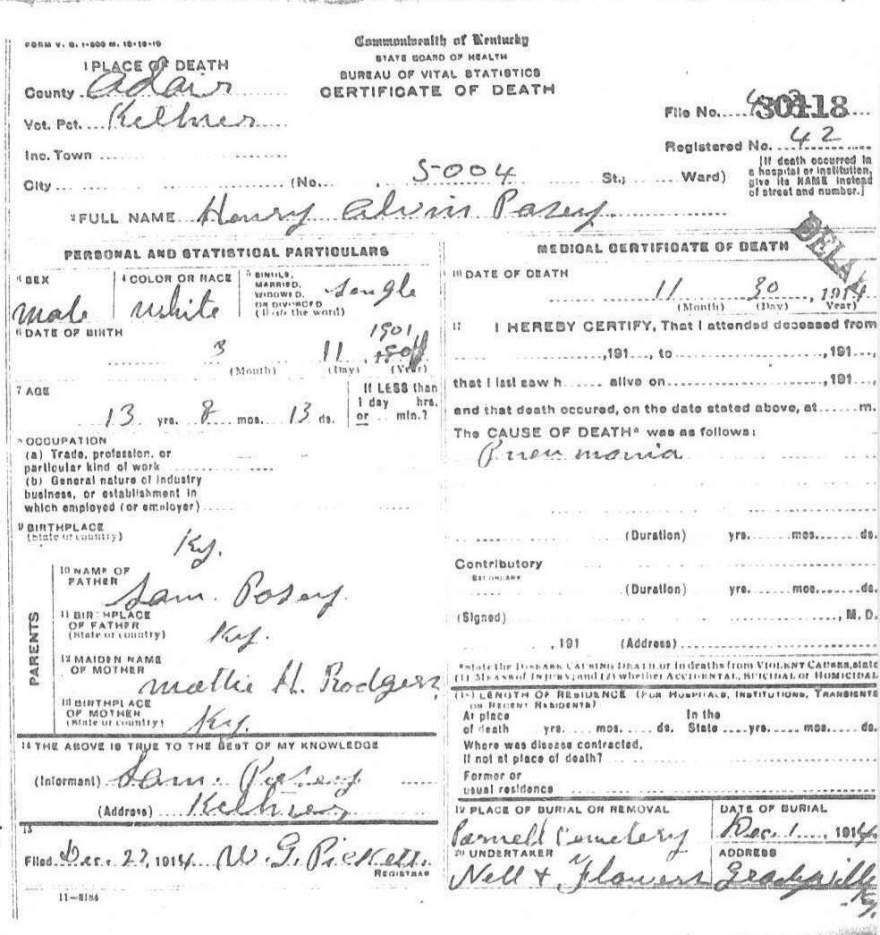 FORM V. S. 1-500 M. 10-10-10
Commonwealth of Kentucky
STATE BOARD OF HEALTH
BUREAU OF VITAL STATISTICS
CERTIFICATE OF DEATH
1 PLACE OF DEATH
County Adair
Vot. Pct. Keltner
Inc. Town
City (No. 5-004 St.; Ward)
File No. 30118
Registered No. 42
[If death occurred in a hospital or institution, give its NAME instead of street and number.]
2 FULL NAME Henry Alvin Posey
DELAY
PERSONAL AND STATISTICAL PARTICULARS
3 SEX male
4 COLOR OR RACE white
5 SINGLE, MARRIED, WIDOWED, OR DIVORCED (Write the word) Single
6 DATE OF BIRTH
3 11 1901
(Month) (Day) (Year)
7 AGE
13 yrs. 8 mos. 13 ds.
If LESS than 1 day hrs. or min.?
8 OCCUPATION
(a) Trade, profession, or
particular kind of work
(b) General nature of industry
business, or establishment in
which employed (or employer)
9 BIRTHPLACE
(State or country) Ky.
PARENTS
10 NAME OF FATHER Sam. Posey
11 BIRTHPLACE OF FATHER (State or country) Ky.
12 MAIDEN NAME OF MOTHER Mattie H. Rodgers
13 BIRTHPLACE OF MOTHER (State or country) Ky.
14 THE ABOVE IS TRUE TO THE BEST OF MY KNOWLEDGE
(Informant) Sam. Posey
(Address) Keltner
15
Filed Dec. 27, 1914 W. G. Pickett.
REGISTRAR
11-8184
MEDICAL CERTIFICATE OF DEATH
16 DATE OF DEATH
11 30, 1914
(Month) (Day) Year)
17 I HEREBY CERTIFY, That I attended deceased from
,191 , to ,191 ,
that I last saw h alive on ,191 ,
and that death occured, on the date stated above, at m.
The CAUSE OF DEATH* was as follows:
Pneumonia
(Duration) yrs. mos. ds.
Contributory
SECONDARY
(Duration) yrs. mos. ds.
(Signed) , M. D.
, 191 (Address)
*State the DISEASE CAUSING DEATH, or in deaths from VIOLENT CAUSES, state
(1) MEANS OF INJURY; and (2) whether ACCIDENTAL, SUICIDAL or HOMICIDAL
18 LENGTH OF RESIDENCE (FOR HOSPITALS, INSTITUTIONS, TRANSIENTS
OR RECENT RESIDENTS)
At place of death yrs. mos. ds. In the State yrs. mos. ds.
Where was disease contracted,
If not at place of death?
Former or
usual residence
19 PLACE OF BURIAL OR REMOVAL
Parnell Cemetery
DATE OF BURIAL
Dec. 1, 1914
20 UNDERTAKER
Nell & Flowers
ADDRESS
Gradyville Ky.